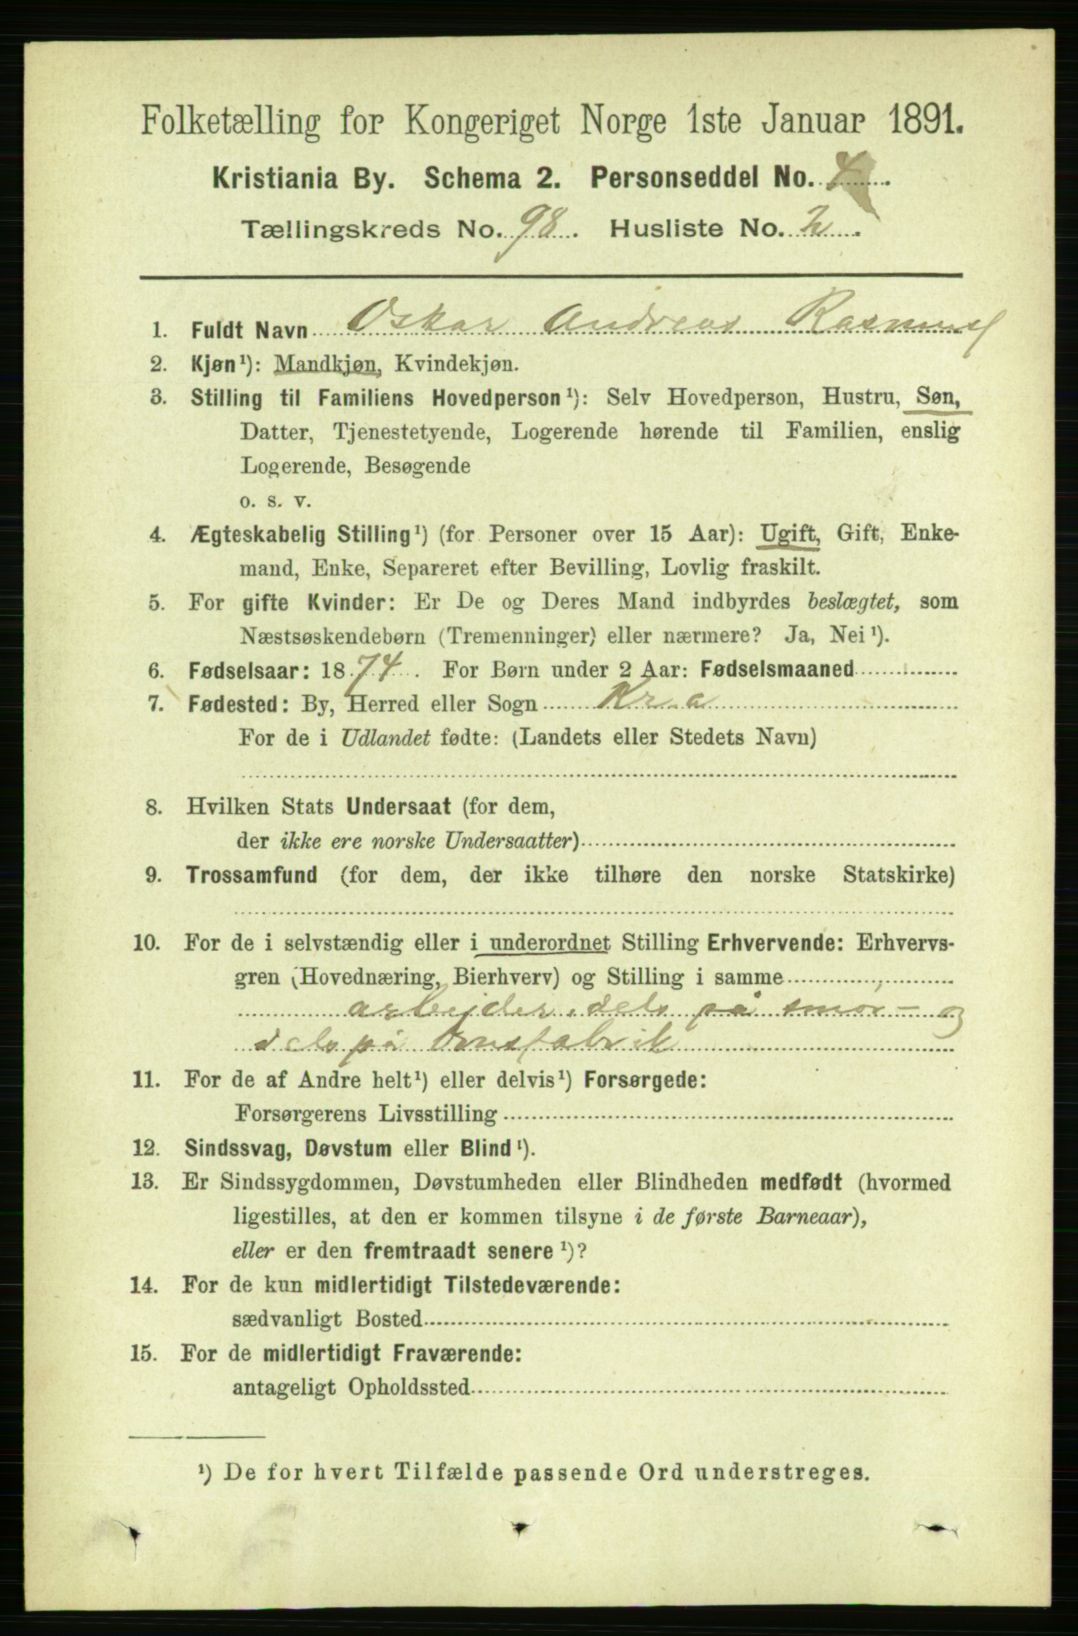 Folketælling for Kongeriget Norge 1ste Januar 1891.
Kristiania By. Schema 2. Personseddel No. 4.
Tællingskreds No. 98. Husliste No. 2.
1. Fuldt Navn Oskar Andreas Rasmus
2. Kjøn¹): Mandkjøn, Kvindekjøn.
3. Stilling til Familiens Hovedperson¹): Selv Hovedperson, Hustru, Søn,
Datter, Tjenestetyende, Logerende hørende til Familien, enslig
Logerende, Besøgende
o. s. v.
4. Ægteskabelig Stilling¹) (for Personer over 15 Aar): Ugift, Gift, Enke-
mand, Enke, Separeret efter Bevilling, Lovlig fraskilt.
5. For gifte Kvinder: Er De og Deres Mand indbyrdes beslægtet, som
Næstsøskendebørn (Tremenninger) eller nærmere? Ja, Nei¹).
6. Fødselsaar: 1874. For Børn under 2 Aar: Fødselsmaaned
7. Fødested: By, Herred eller Sogn Kr.a
For de i Udlandet fødte: (Landets eller Stedets Navn)
8. Hvilken Stats Undersaat (for dem,
der ikke ere norske Undersaatter)
9. Trossamfund (for dem, der ikke tilhøre den norske Statskirke)
10. For de i selvstændig eller i underordnet Stilling Erhvervende: Erhvervs-
gren (Hovednæring, Bierhverv) og Stilling i samme
arbejder, dels på smør- og
dels på fabrik
11. For de af Andre helt¹) eller delvis¹) Forsørgede:
Forsørgerens Livsstilling
12. Sindssvag, Døvstum eller Blind¹).
13. Er Sindssygdommen, Døvstumheden eller Blindheden medfødt (hvormed
ligestilles, at den er kommen tilsyne i de første Barneaar),
eller er den fremtraadt senere¹)?
14. For de kun midlertidigt Tilstedeværende:
sædvanligt Bosted
15. For de midlertidigt Fraværende:
antageligt Opholdssted
¹) De for hvert Tilfælde passende Ord understreges.